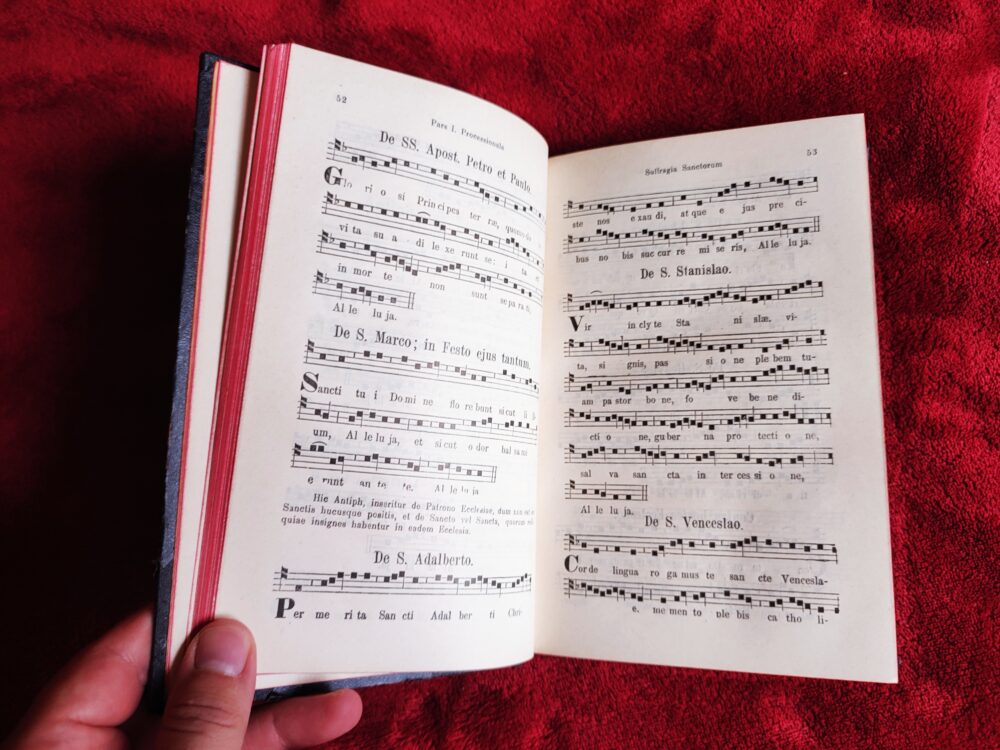 52
Pars I. Processionale
De SS. Apost. Petro et Paulo.
Glo ri o si Prin ci pes ter ræ, quomo do
vi ta su a di le xe runt se: i ta et
in mor te non sunt se pa ra ti,
Al le lu ja.
De S. Marco; in Festo ejus tantum.
Sancti tu i Do mi ne flo re bunt si cut li li
um, Al le lu ja, et si cut o dor bal sa mi
e runt an te te. Al le lu ja
Hic Antiph. inseritur de Patrono Ecclesiae, dum
Sanctis hucusque positis, et de Sancto vel Sancta, quorum
quiae insignes habentur in eadem Ecclesia.
De S. Adalberto.
Per me ri ta San cti Adal ber ti Chri-
53
Suffragia Sanctorum
ste nos e xau di, at que e jus pre ci-
bus no bis suc cur re mi se ris, Al le lu ja.
De S. Stanislao.
Vir in cly te Sta ni slæ. vi-
ta, si gnis, pas si o ne ple bem tu-
am pa stor bo ne, fo ve be ne di-
cti o ne, gu ber na pro tecti o ne,
sal va san cta in ter ces si o ne,
Al le lu ja.
De S. Venceslao.
Cor de lingua ro ga mus te san cte Vencesla-
e, me men to ple bis ca tho li-